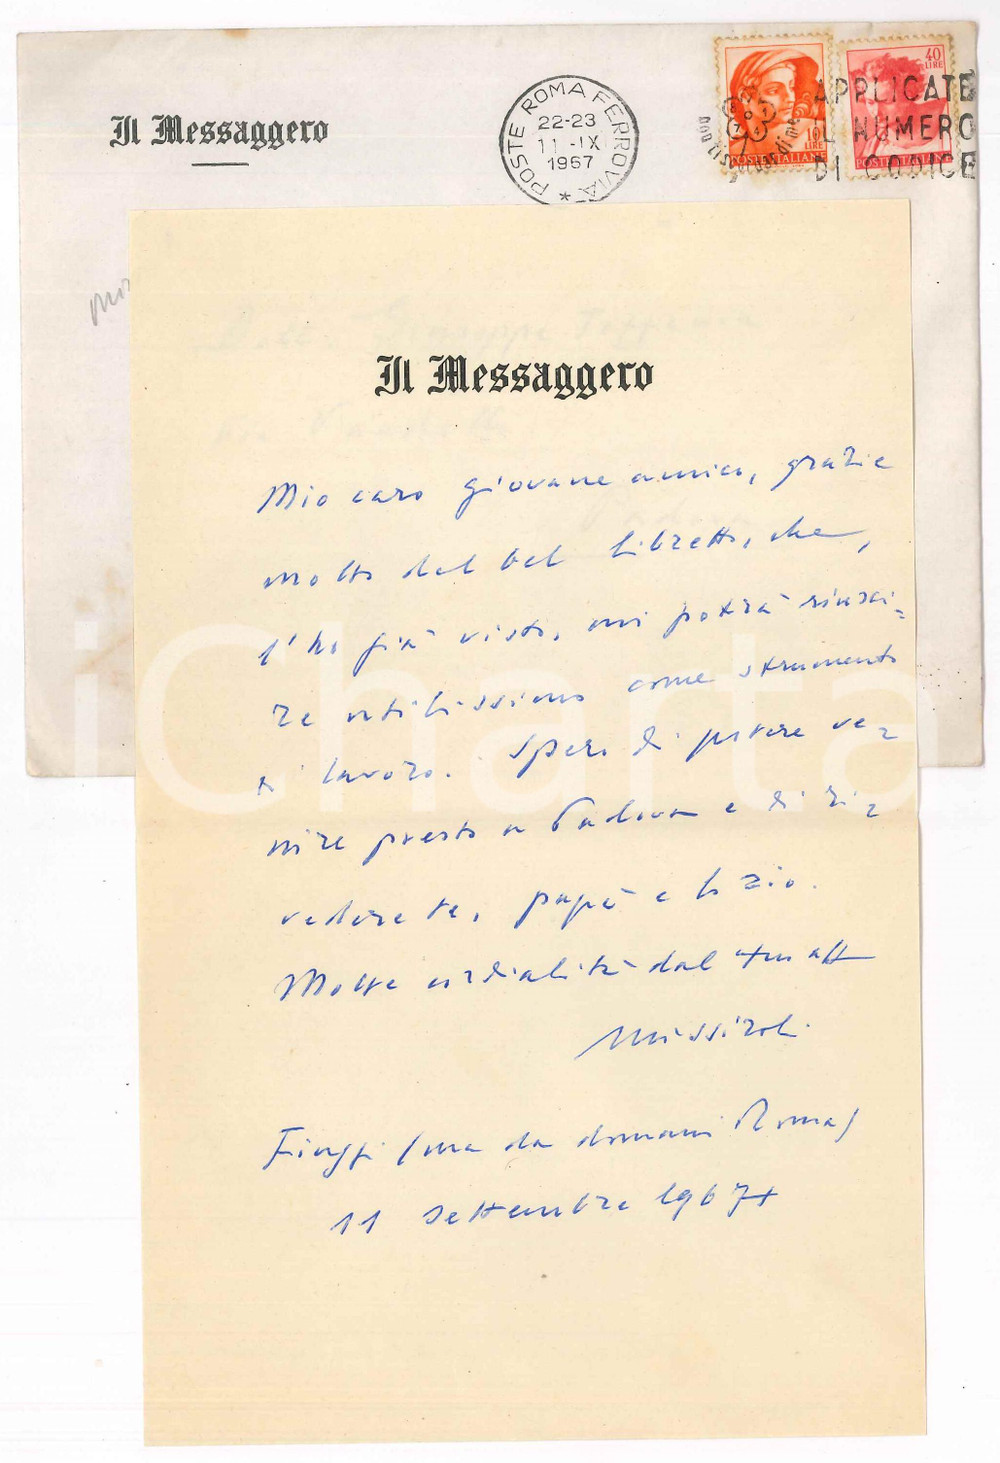 Il Messaggero
POSTE ROMA FERROVIA
22-23
11-IX
1967
10 LIRE
POSTE ITALIANE
40 LIRE
POSTE ITALIANE
APPLICATE
IL NUMERO
DI CODICE
Il Messaggero
Mio caro giovane amico, grazie
molto del bel libretto, che,
l'ho già visto, mi potrà riusci=
re utilissimo come strumento
di lavoro. Spero di potere ve=
nire presto a Padova e di ri=
vedere te, papà e lo zio.
Molte cordialità dal tuo aff
Missiroli
Fiuggi (ma da domani Roma)
11 settembre 1967
iCharta